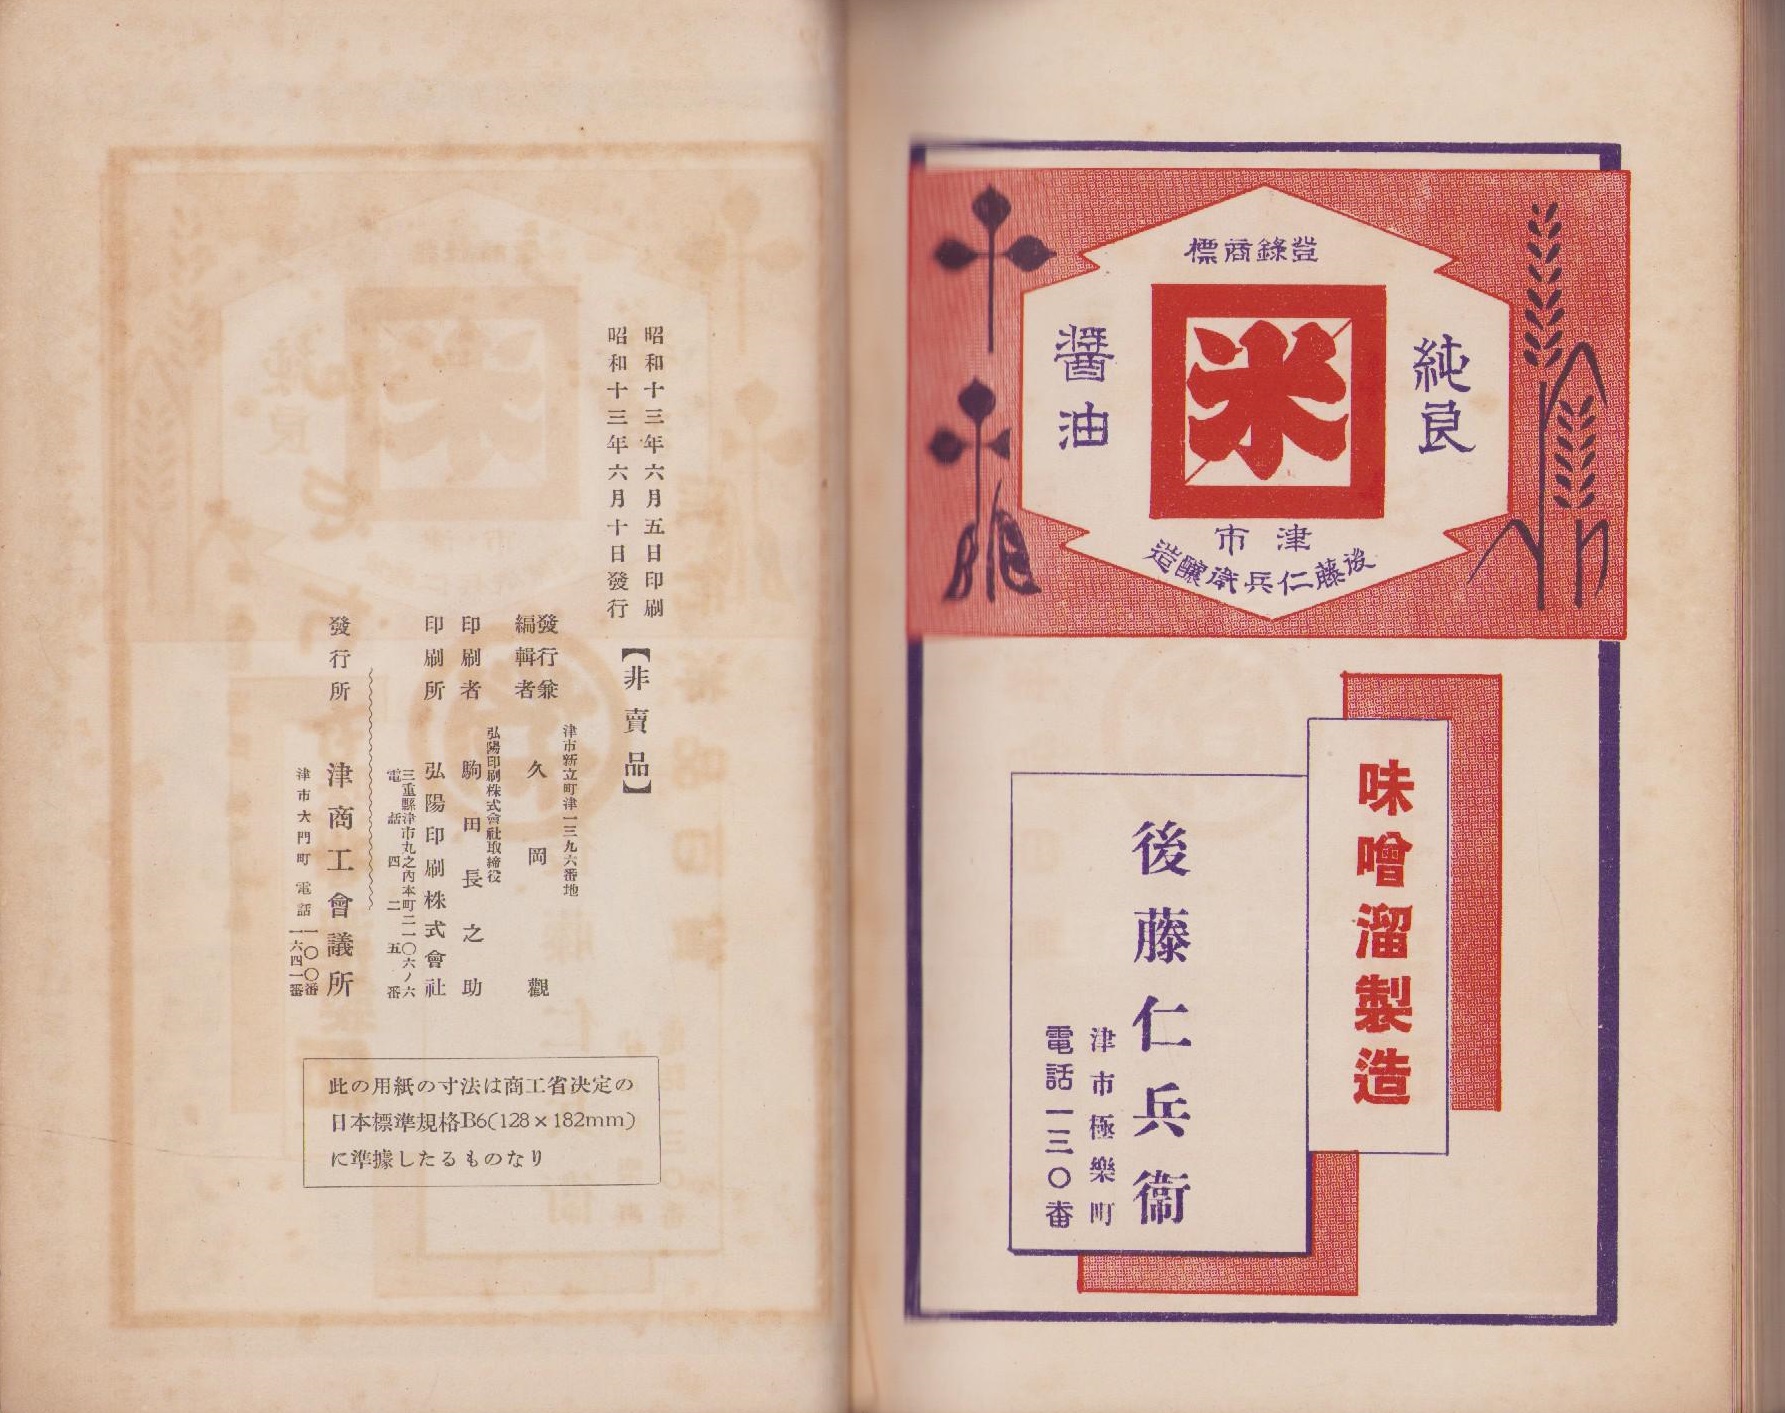 登錄商標
純良
醤油
米
津市
後藤仁兵衛醸造
味噌溜製造
後藤仁兵衞
津市極樂町
電話一三〇番
昭和十三年六月五日印刷
昭和十三年六月十日發行
【非賣品】
津市新立町津一三九六番地
發行兼
編輯者
久岡觀
弘陽印刷株式會社取締役
印刷者 駒田長之助
印刷所 弘陽印刷株式會社
三重縣津市丸之內本町二一〇六ノ六
電話四二五番
發行所 津商工會議所
津市大門町 電話
一〇〇番
一六四一番
此の用紙の寸法は商工省決定の
日本標準規格B6(128×182mm)
に準據したるものなり